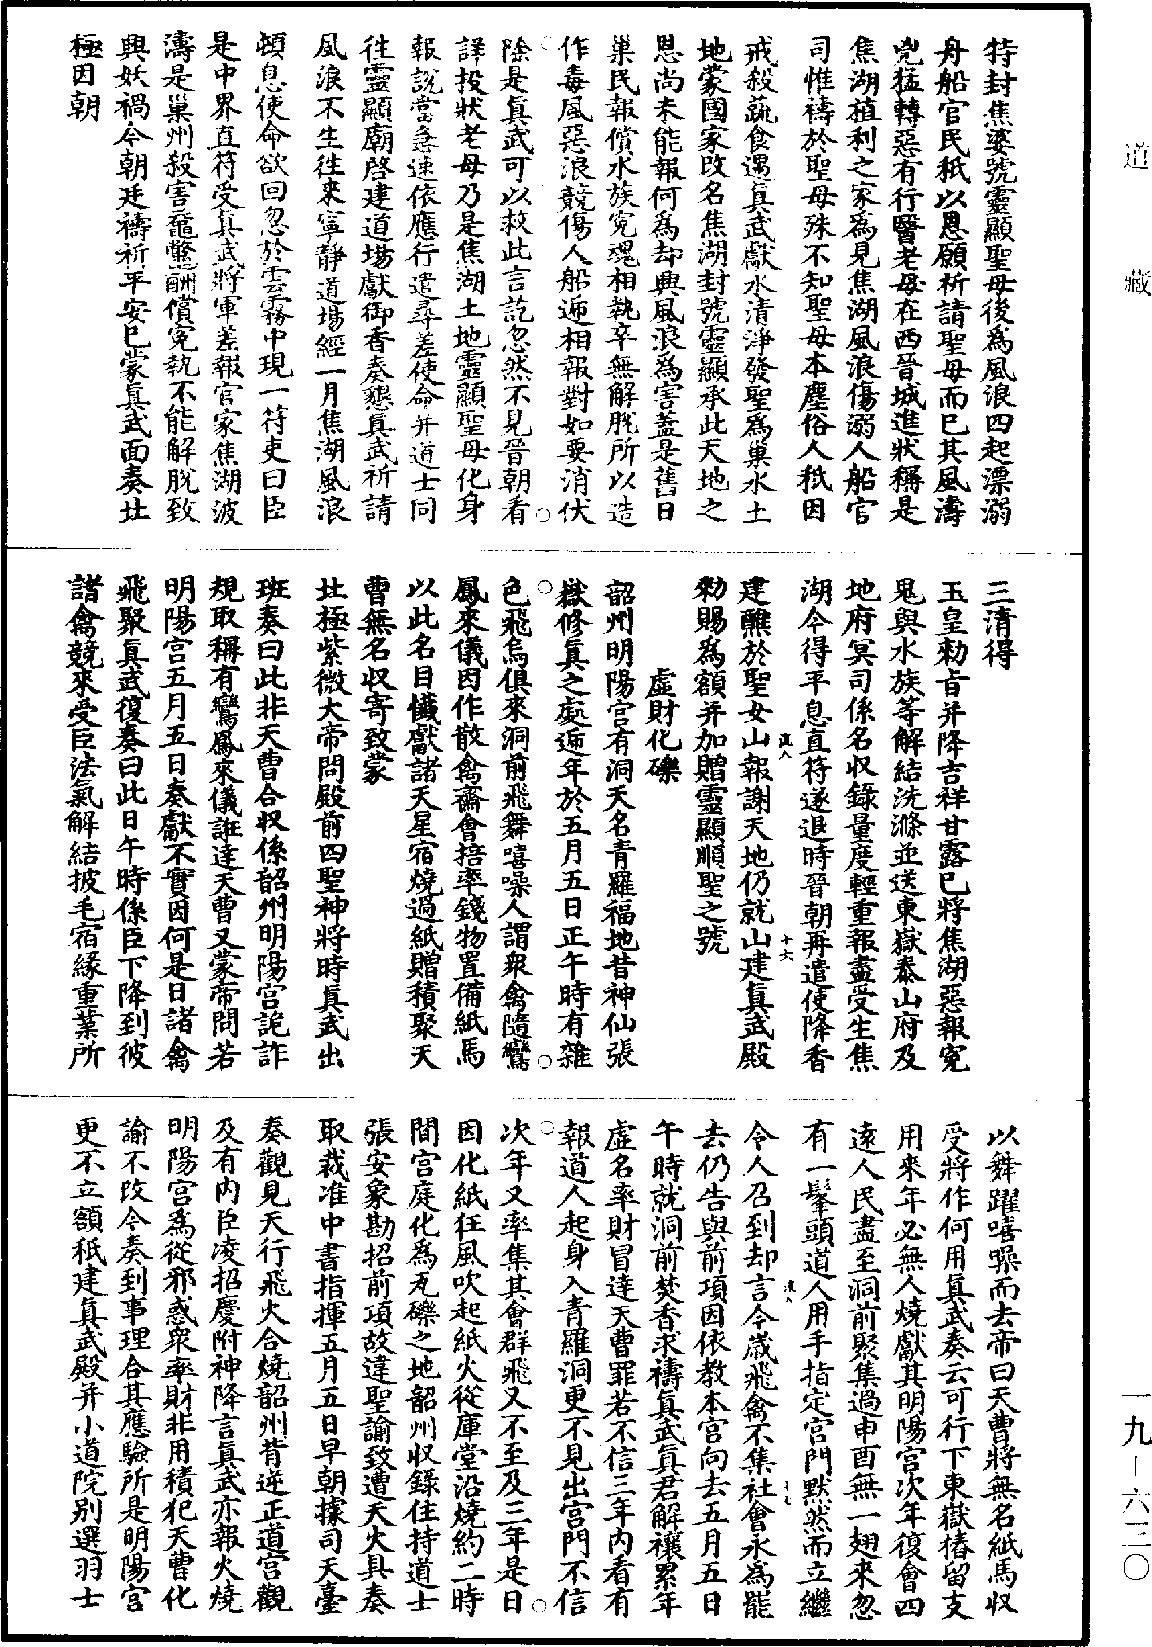 道藏
一九—六二〇
特封焦婆號靈顯聖母後為風浪四起漂溺
舟船官民秖以恩願祈請聖母而已其風濤
兇猛轉惡有行醫老母在西晉城進狀稱是
焦湖植利之家為見焦湖風浪傷溺人船官
司惟禱於聖母殊不知聖母本塵俗人秖因
戒殺蔬食遇真武獻水清淨發聖為巢水土
地蒙國家改名焦湖封號靈顯承此天地之
恩尚未能報何為却興風浪為害蓋是舊日
巢民報償水族冤魂相執卒無解脫所以造
作毒風惡浪競傷人船遞相報對如要消伏
除是真武可以救此言訖忽然不見晉朝看
詳投狀老母乃是焦湖土地靈顯聖母化身
報說當急速依應行遣尋差使命并道士同
往靈顯廟啓建道場獻御香奏懇真武祈請
風浪不生往來寧靜道場經一月焦湖風浪
頓息使命欲回忽於雲霧中現一符吏曰臣
是中界直符受真武將軍差報官家焦湖波
濤是巢州殺害黿鱉酬償冤執不能解脫致
興妖禍今朝廷禱祈平安已蒙真武面奏北
極因朝
三清得
玉皇勑旨并降吉祥甘露已將焦湖惡報冤
鬼與水族等解結洗滌並送東嶽泰山府及
地府冥司係名収錄量度輕重報盡受生焦
湖今得平息直符遂退時晉朝再遣使降香
建醮於聖女山報謝天地仍就山建真武殿
勑賜為額并加贈靈顯順聖之號
虛財化礫
韶州明陽宮有洞天名青羅福地昔神仙張
嶽修真之處遞年於五月五日正午時有雜
色飛鳥俱來洞前飛舞嘻噪人謂衆禽隨鸞
鳳來儀因作散禽齋會掊率錢物置備紙馬
以此名目懺獻諸天星宿燒過紙贈積聚天
曹無名収寄致蒙
北極紫微大帝問殿前四聖神將時真武出
班奏曰此非天曹合収係韶州明陽宮詭詐
規取稱有鸞鳳來儀誑達天曹又蒙帝問若
明陽宮五月五日奏獻不實因何是日諸禽
飛聚真武復奏曰此日午時係臣下降到彼
諸禽競來受臣法氣解結披毛宿緣重業所
以舞躍嘻噪而去帝曰天曹將無名紙馬収
受將作何用真武奏云可行下東嶽樁留支
用來年必無人燒獻其明陽宮次年復會四
遠人民盡至洞前聚集過申酉無一翅來忽
有一髼頭道人用手指定宮門默然而立繼
令人召到却言今歲飛禽不集社會永為罷
去仍告與前項因依教本宮向去五月五日
午時就洞前焚香求禱真武真君解禳累年
虛名率財冒達天曹罪若不信三年內看有
報道人起身入青羅洞更不見出宮門不信
次年又率集其會群飛又不至及三年是日
因化紙狂風吹起紙火從庫堂沿燒約二時
間宮庭化為瓦礫之地韶州収錄住持道士
張安象勘招前項故違聖諭致遭天火具奏
取裁准中書指揮五月五日早朝據司天臺
奏觀見天行飛火合燒韶州背逆正道宮觀
及有內臣凌招慶附神降言真武亦報火燒
明陽宮為從邪惑衆率財非用積犯天曹化
諭不改今奏到事理合其應驗所是明陽宮
更不立額秖建真武殿并小道院别選羽士